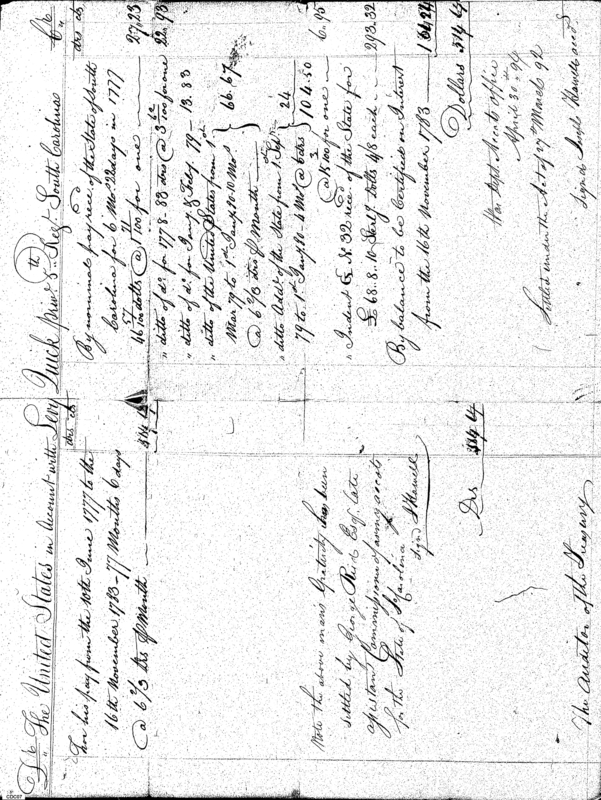 Dr. The United States in Account with Levy Quick priv: 5th Regt. South Carolina Cr.
drs cts
For his pay from the 10th June 1777 to the
16th November 1783 - 77 Months 6 days
@ 6 2/3 drs pr Month
Note the above mans Gratuity has been
settled by George Reid Esqr. late
assistant Commissioner of army accots
for the State of So Carolina
Sign'd J Howell
Drs 514 64
The Auditor of the Treasury
drs cts
By nominal pay recd. of the State of South
Carolina for 6 Mos 22 days in 1777
@ 100 for one 27.23
" ditto of do. for 1778 - 83 drs @ 100 for one 22.93
" ditto of do. for Jany. & Feby. 79 - 13.33
" ditto of the United States from 1st
Mar 79 to 1st Jany 80 - 10 Mos
@ 6 2/3 drs pr Month 66.67
" ditto Addl. of the State from 1 Sept
79 to 1st Jany 80 - 4 Mos @ 6 drs 24
104.50
@ 100 for one 6.95
" Indent No. 32 recd. of the State for
£ 68.8.10 Sterlg dolls 4/8 each 293.32
By balance to be Certified on Interest
from the 16th November 1783 164.24
Dollars 514 67
War Dept Accots office
April 30th 94
Settled under the Act of 27th March 92
Sign'd Joseph Howell